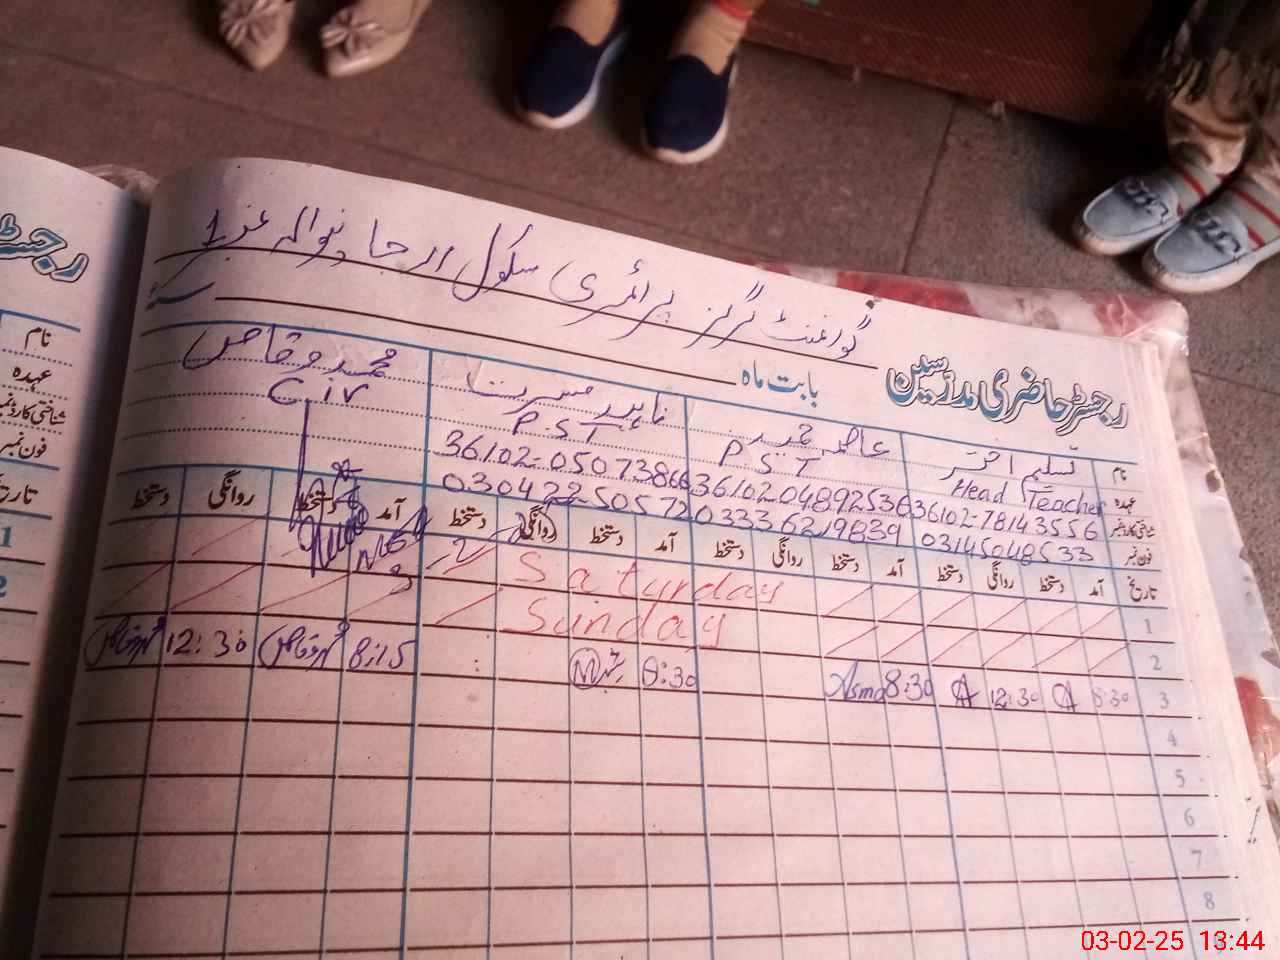 گورنمنٹ گرلز پرائمری سکول
رجسٹر حاضری مدرسین
بابت ماہ
سنہ
نام تسلیم اختر ناہید مسرت محمد وقاص
عہدہ Head Teacher P.S.T P.S.T C.iv
شناختی کارڈ نمبر 36102-7814355 6 36102048925 36 36102-05073866
فون نمبر 03145048533 03336219839 03042250572
تاریخ آمد دستخط روانگی دستخط آمد دستخط روانگی دستخط آمد دستخط روانگی دستخط آمد دستخط روانگی دستخط
1 Saturday
2 Sunday
3 8:30 12:30 8:30 Asma 8:30 8:15 محمد وقاص 12:30 محمد وقاص
4
5
6
7
8
رجسٹر
نام
عہدہ
شناختی کارڈ نمبر
فون نمبر
تاریخ
1
2
03-02-25 13:44